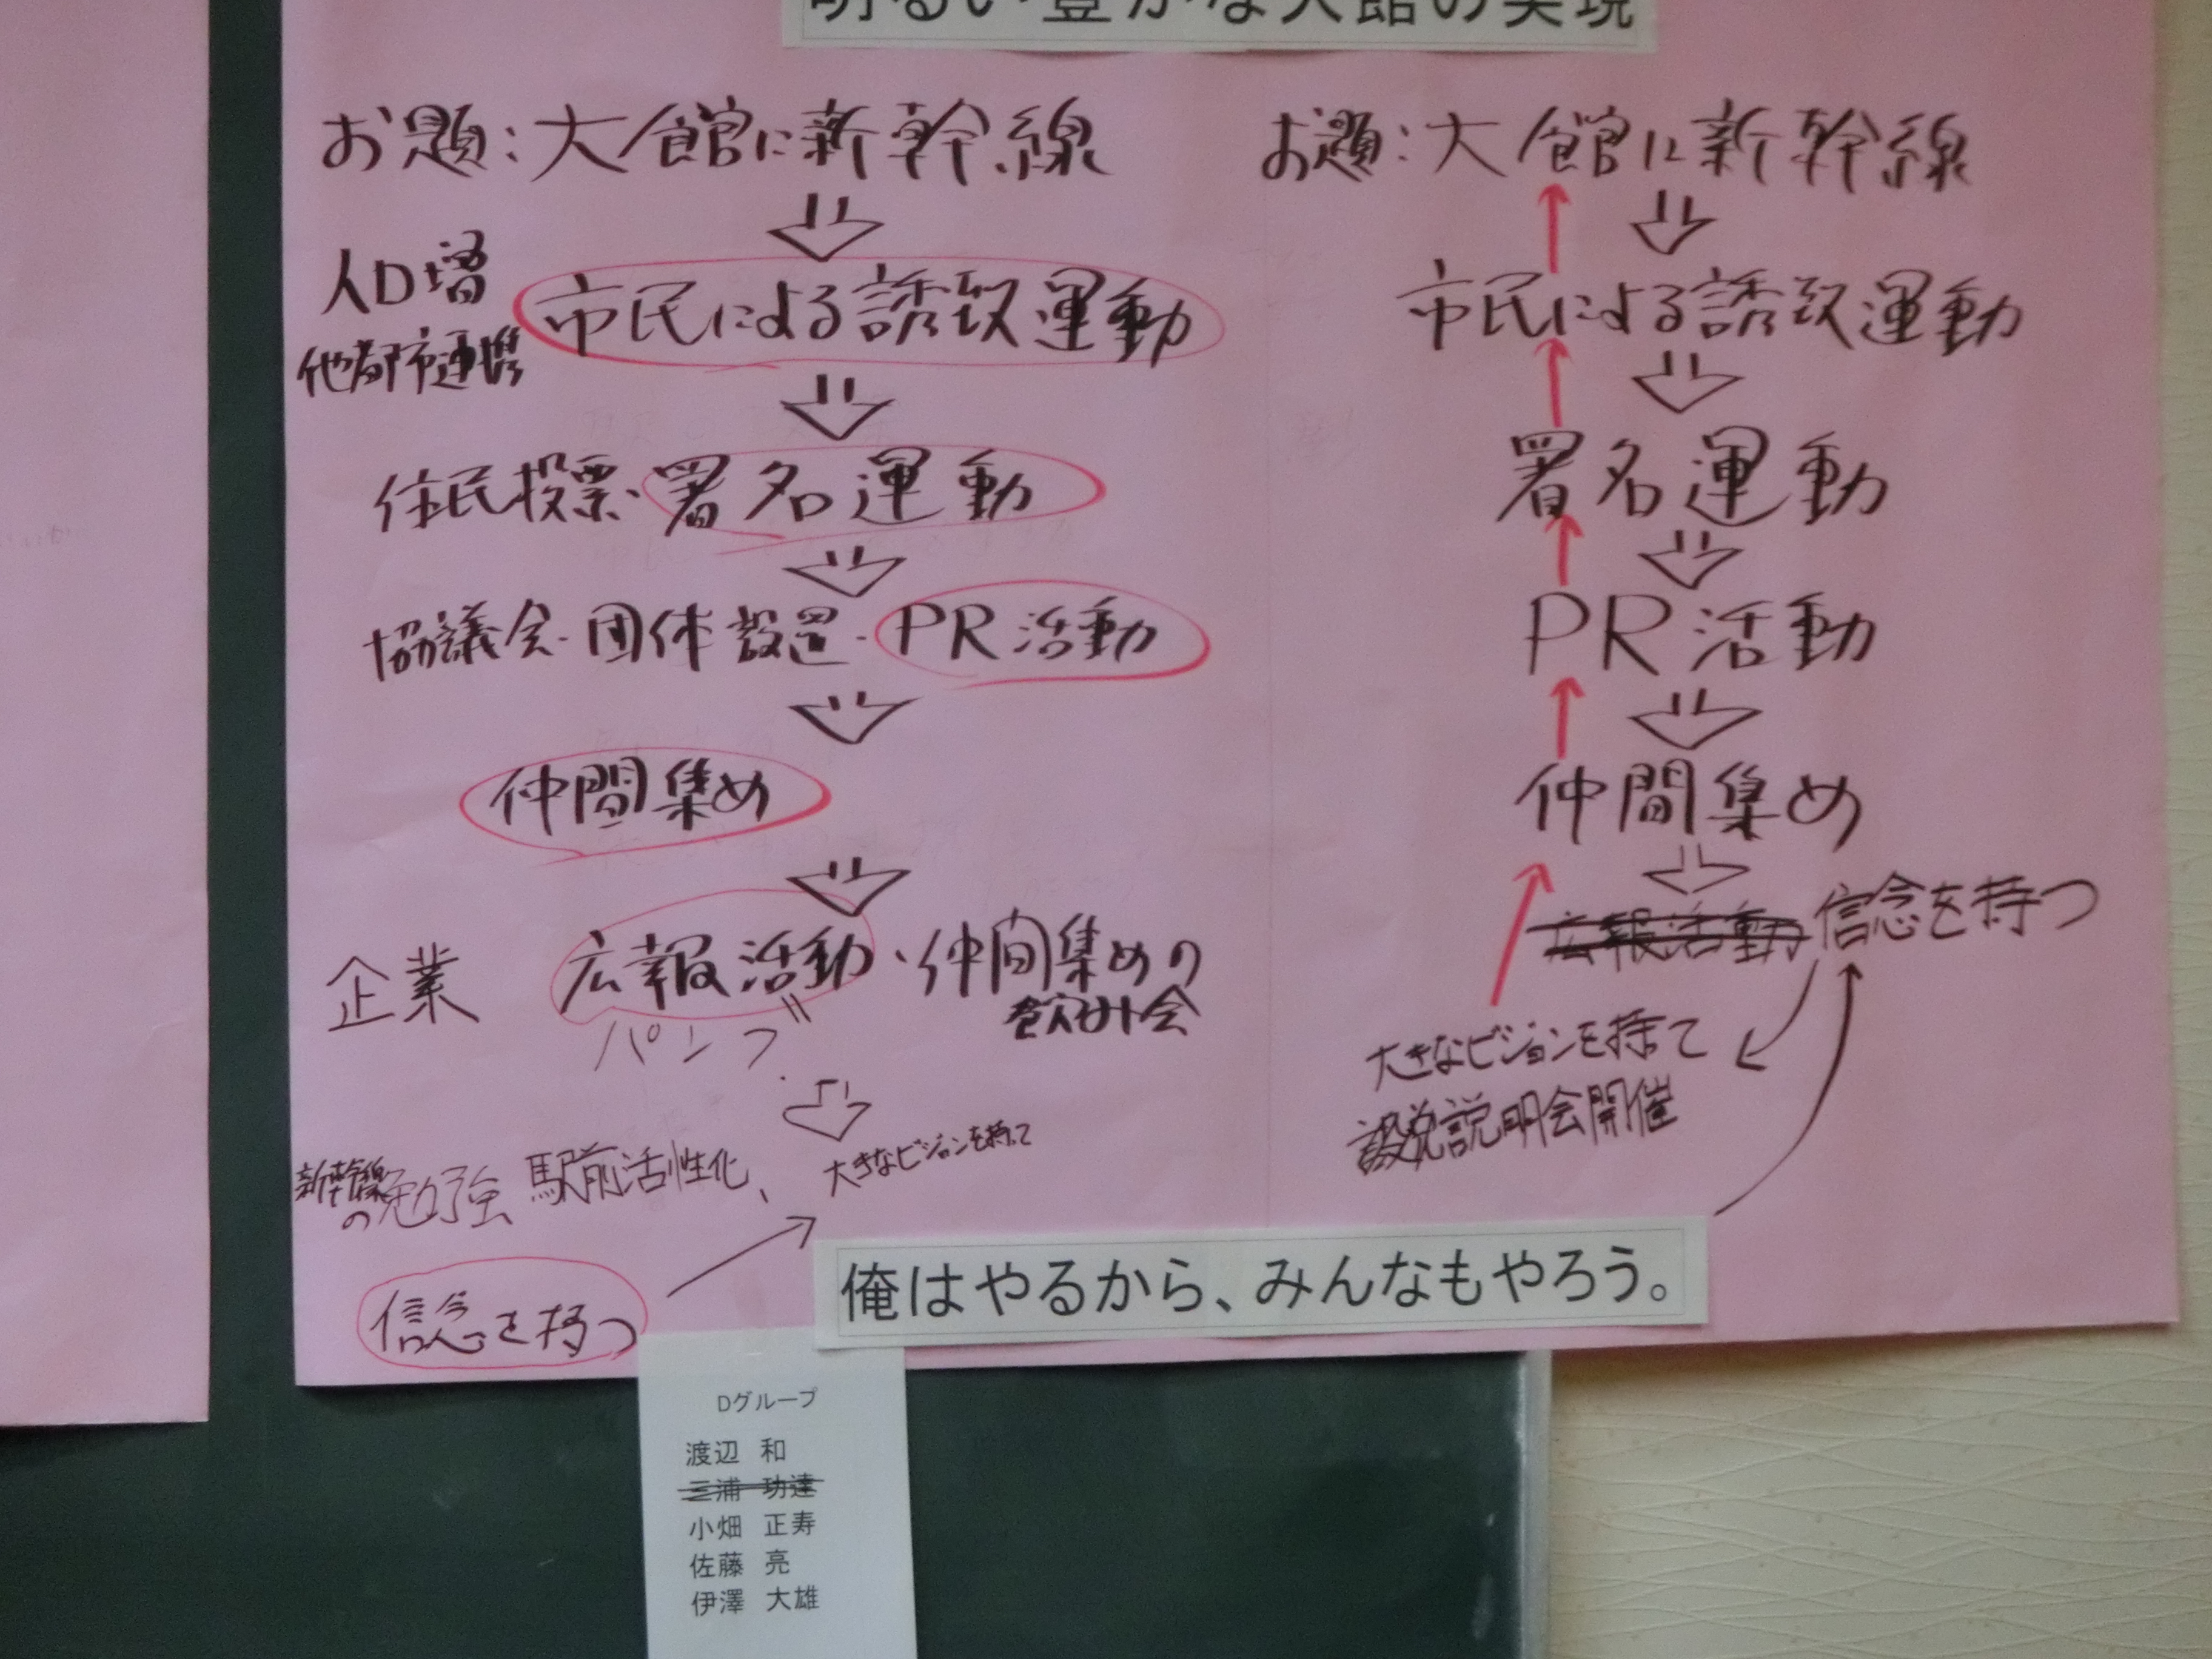 明るい豊かな大館の実現
お題:大館に新幹線
人口増
他都市連携
市民による誘致運動
住民投票・署名運動
協議会・団体設置・PR活動
仲間集め
企業
広報活動・仲間集めの
飲み会
パンフ
新幹線
の勉強
駅前活性化、
大きなビジョンを持って
信念を持つ
お題:大館に新幹線
市民による誘致運動
署名運動
PR活動
仲間集め
広報活動 信念を持つ
大きなビジョンを持って
説明会開催
俺はやるから、みんなもやろう。
Dグループ
渡辺 和
三浦 功達
小畑 正寿
佐藤 亮
伊澤 大雄